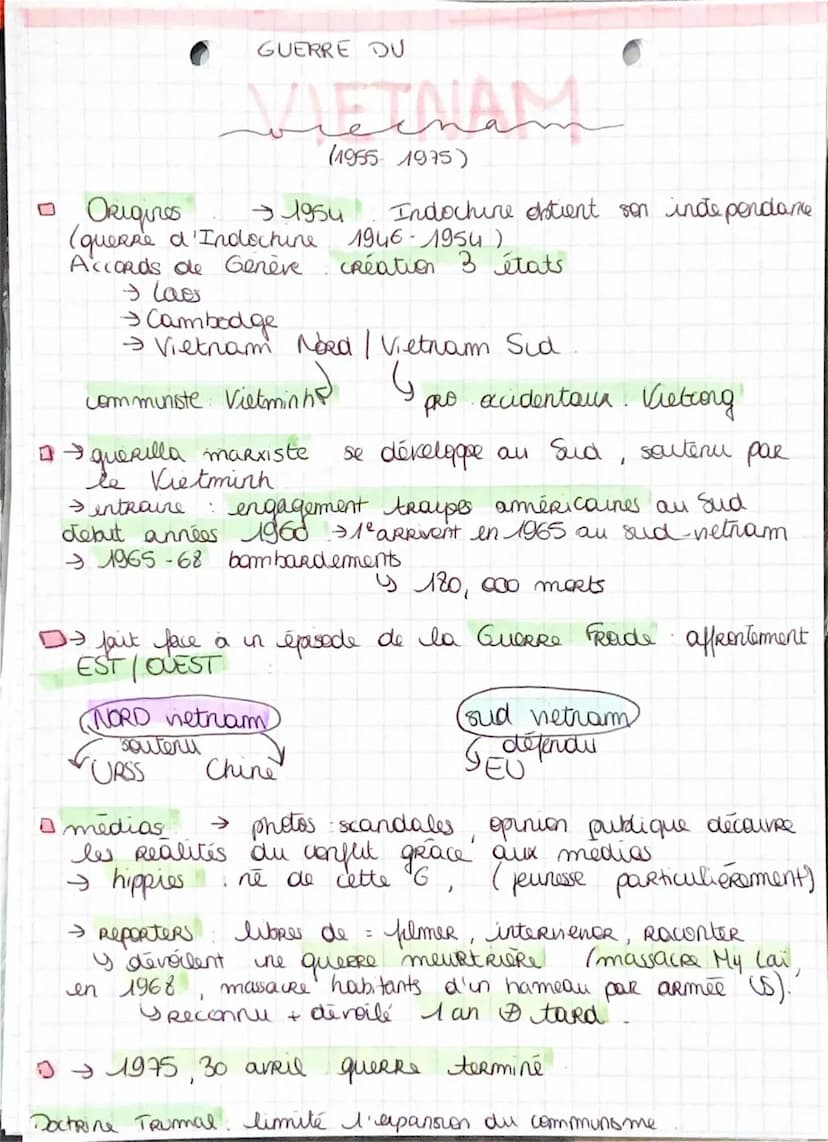 GUERRE DU
VIETNAM
vietnam
(1955-1975)
Origines → 1954 : Indochine obtient son indépendance
(guerre d'Indochine 1946-1954)
Accords de Genève : création 3 états
→ Laos
→ Cambodge
→ Vietnam Nord / Vietnam Sud
communiste : Vietminh
pro occidentaux : Vietcong
→ guérilla marxiste se développe au Sud, soutenu par
le Vietminh
→ entraine : engagement troupes américaines au Sud
début années 1960 → 1e arrivent en 1965 au sud-vietnam
→ 1965-68 bombardements
↳ 180,000 morts
→ fait face à un épisode de la Guerre Froide : affrontement
EST / OUEST
NORD vietnam sud vietnam
soutenu défendu
URSS Chine EU
médias → photos : scandales, opinion publique découvre
les réalités du conflit grâce aux médias
→ hippies : né de cette G, (jeunesse particulièrement)
→ reporters : libres de = filmer, intervienor, raconter
↳ dévoilent une guerre meurtrière (massacre My Lai,
en 1968, massacre habitants d'un hameau par armée (S).
↳ reconnu + dévoilé 1 an ⊕ tard.
→ 1975, 30 avril : guerre terminé
Doctrine Trumal : limité l'expansion du communisme